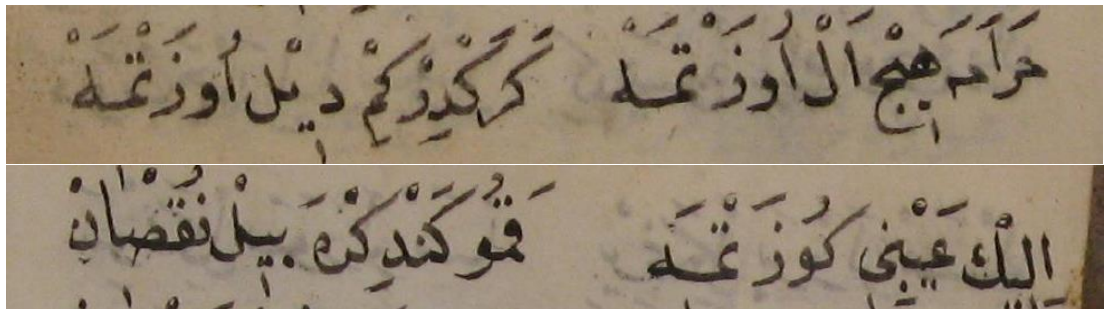 حَرَامَه هِيجْ اَلْ اُوزَتْمَه كَرَكْدِرْ كِمْ دِيلْ اُوزَتْمَه
اِلِيْكْ عَيْبِنِى كُوزَتْمَه قَمُو كَنْدِكْدَه بِيلْ نُقْصَانْ